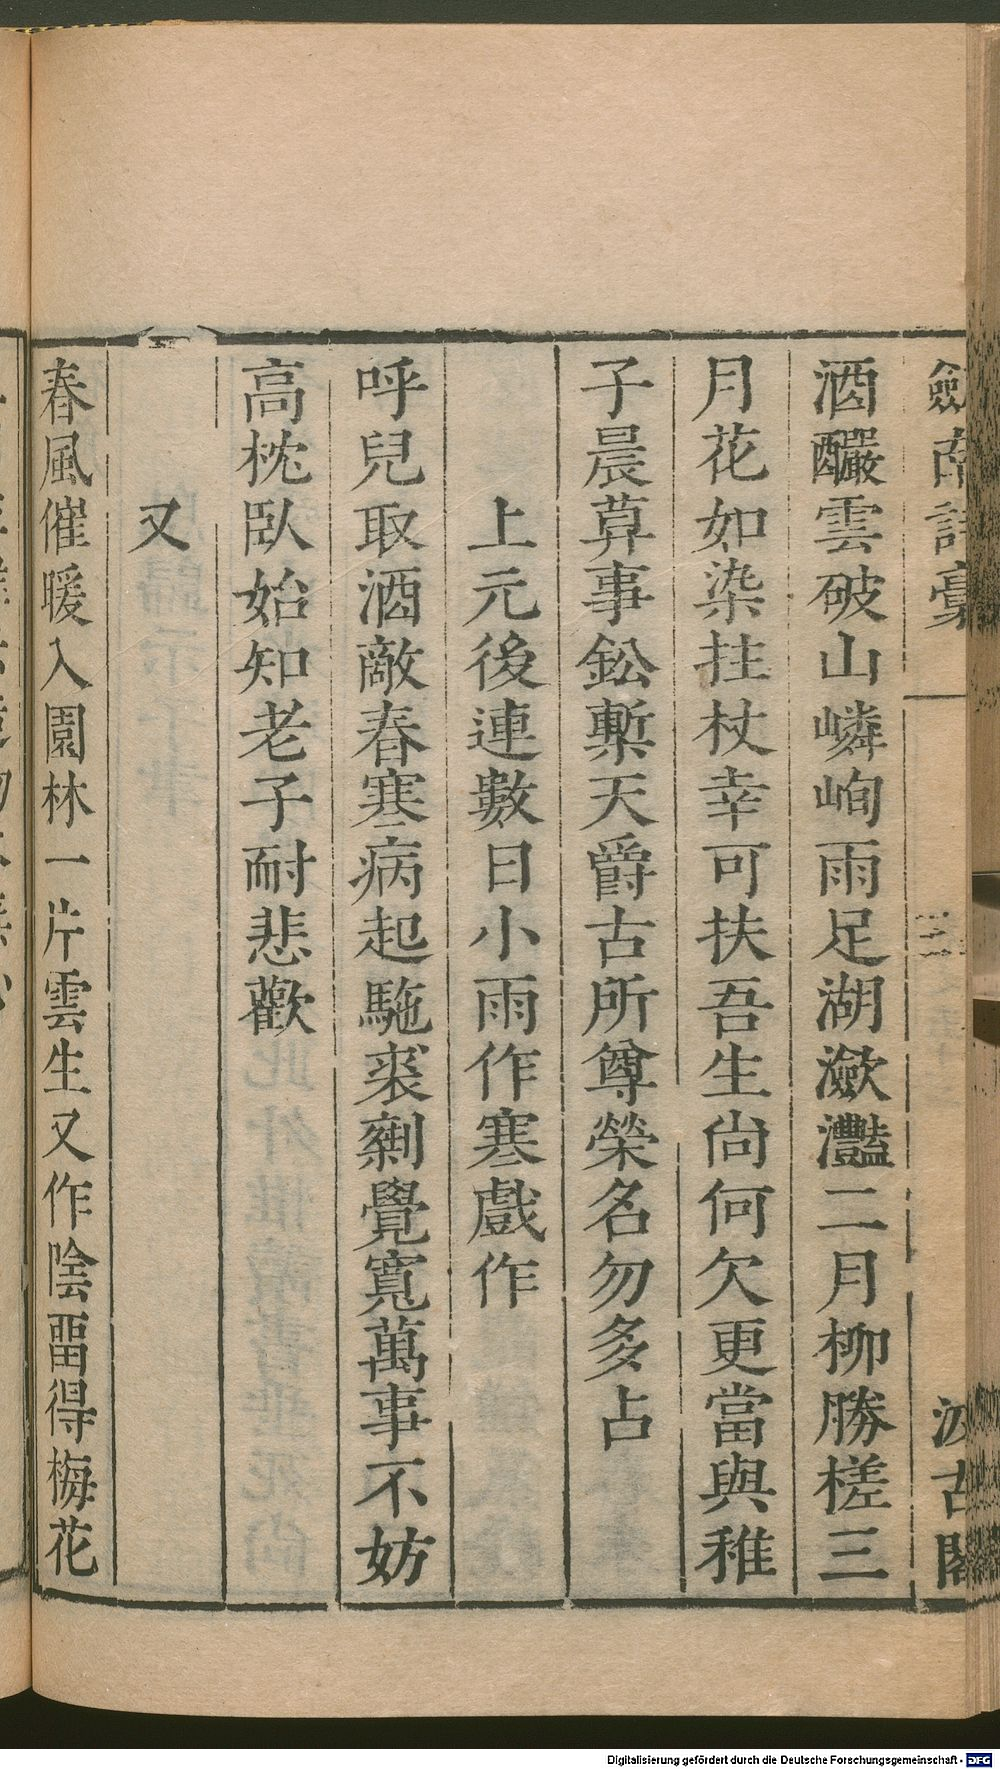 劔南詩稾
三
汲古閣
酒釅雲破山嶙峋雨足湖瀲灩二月柳勝槎三
月花如染拄杖幸可扶吾生尙何欠更當與稚
子晨萛事鈆槧天爵古所尊榮名勿多占
上元後連數日小雨作寒戲作
呼兒取酒敵春寒病起駞裘剩覺寬萬事不妨
高枕臥始知老子耐悲歡
又
春風催暖入園林一片雲生又作陰畱得梅花
Digitalisierung gefördert durch die Deutsche Forschungsgemeinschaft - DFG